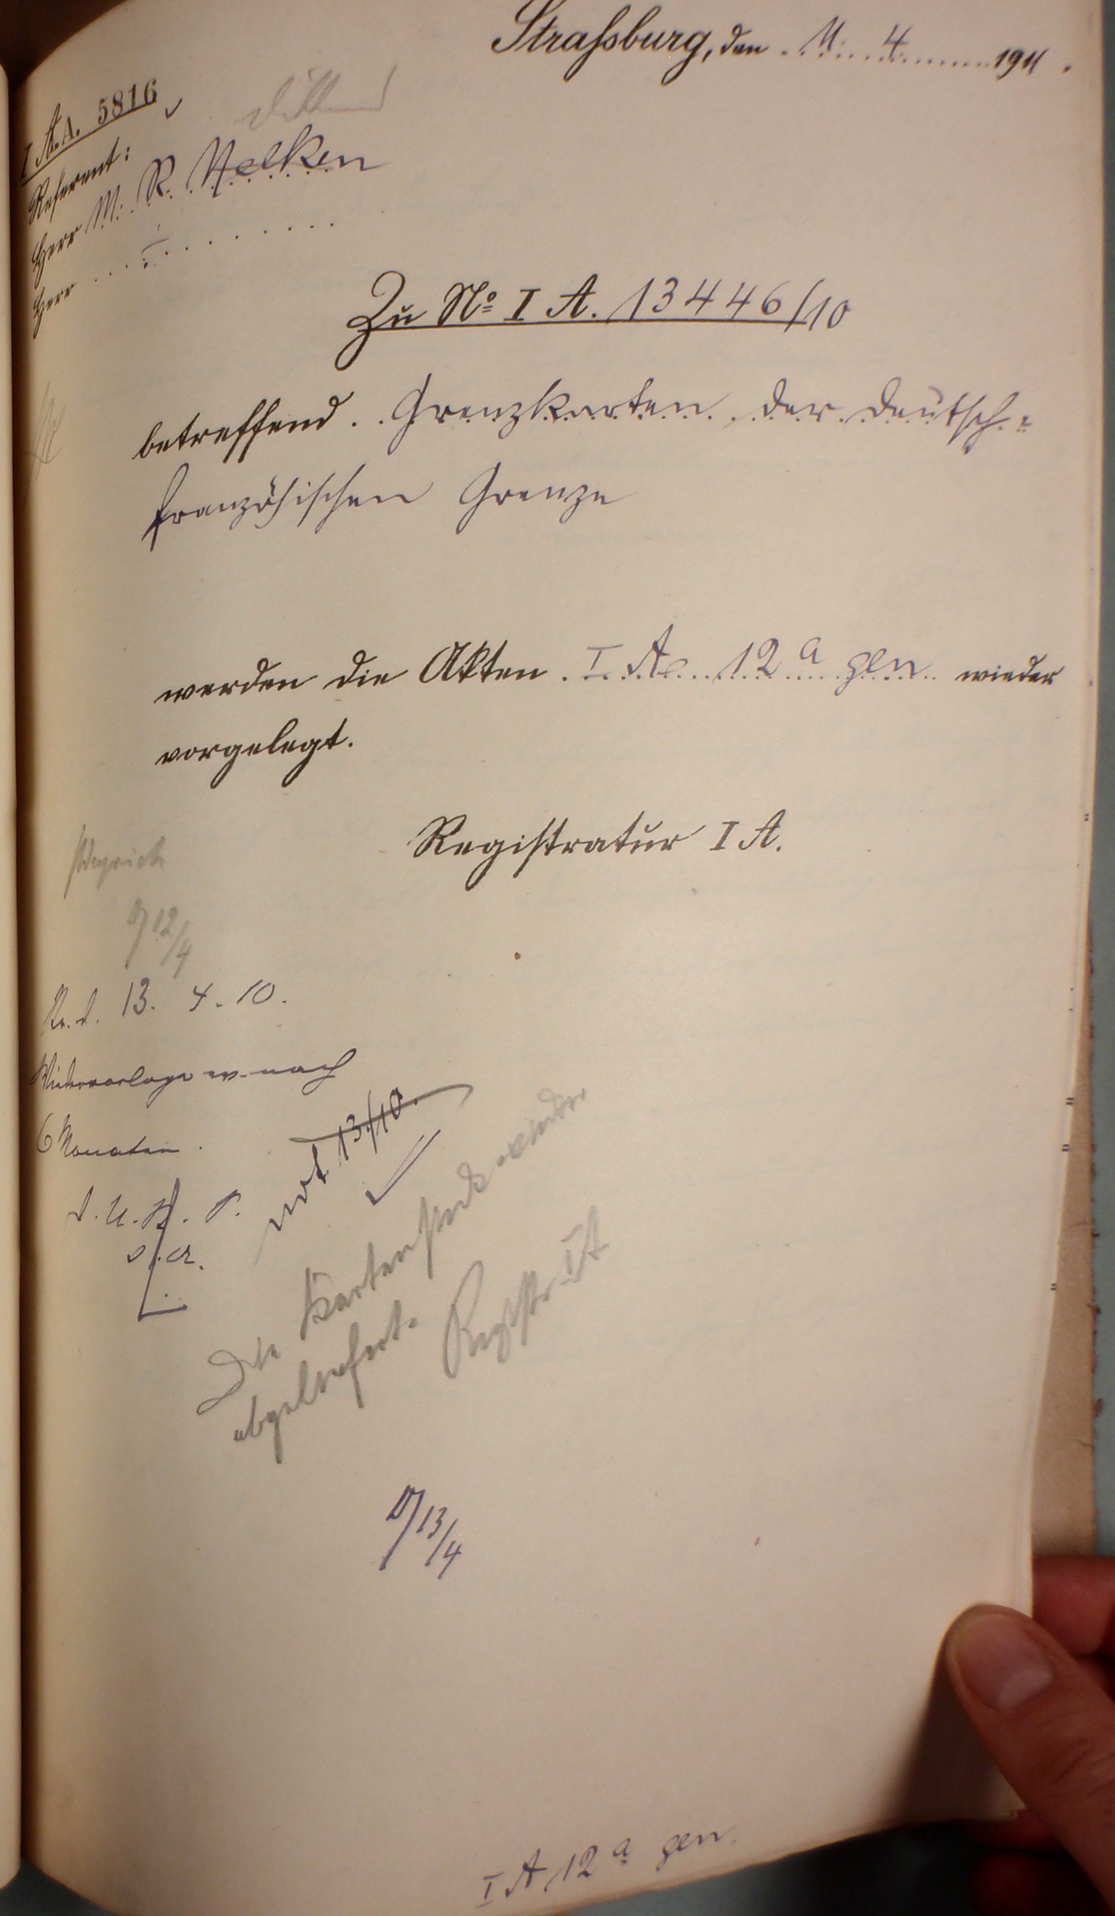 Straßburg, den 11. 4. 1911.
I A.A. 5816
Referent:
Herr M. R. Nelken
Herr
Zu No I A. 13446/10
betreffend. Grenzkarten der deutsch-
französischen Grenze
werden die Akten I A. 12 a gen wieder
vorgelegt.
Registratur I A.
12/4
13. 4. 10.
Wiedervorlage nach
6 Monaten.
not 13/10.
Die Karten sind wieder
abgeliefert.
13/4
I A 12 a gen.